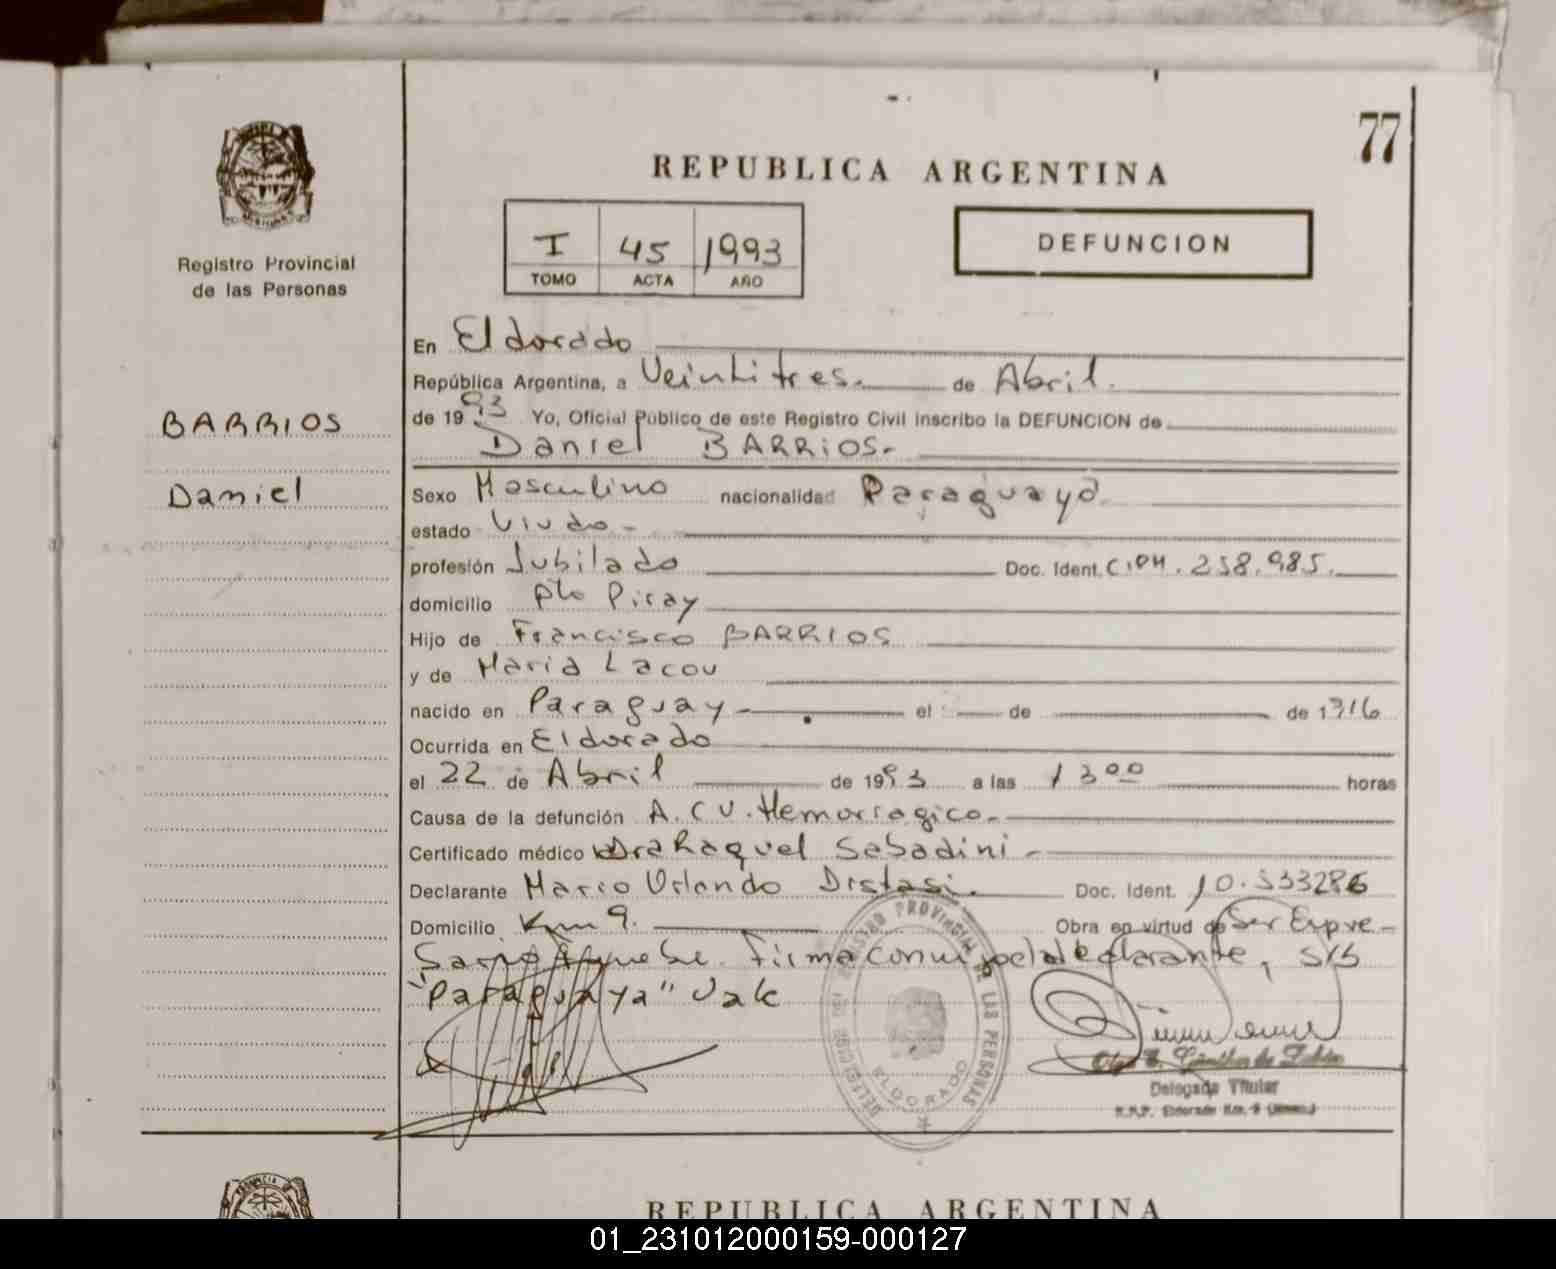 77
REPUBLICA ARGENTINA
Registro Provincial
de las Personas
I 45 1993
TOMO ACTA AÑO
DEFUNCION
BARRIOS
Daniel
En Eldorado
República Argentina, a Veintitres. de Abril.
de 1993 Yo, Oficial Público de este Registro Civil inscribo la DEFUNCION de
Daniel BARRIOS.-
Sexo Masculino nacionalidad Paraguaya
estado Viudo -
profesión Jubilado Doc. Ident. C.I.M. 258.985.
domicilio Pto Piray
Hijo de Francisco BARRIOS
y de Maria Lacou
nacido en Paraguay - el de de 1916
Ocurrida en Eldorado
el 22 de Abril de 1993 a las 13 00 horas
Causa de la defunción A.C.V. Hemorragico.-
Certificado médico Dra Raquel Sabadini -
Declarante Mario Orlando Distasi. Doc. Ident. 10.533286
Domicilio Km 9. Obra en virtud de Ser Empre-
sario Funebre. Firma conmigo el declarante, S/B
"Paraguaya" Vale
DELEGACION DEL REGISTRO PROVINCIAL DE LAS PERSONAS
ELDORADO
Delegada Titular
R.P.P. Eldorado Km. 9
REPUBLICA ARGENTINA
01_231012000159-000127